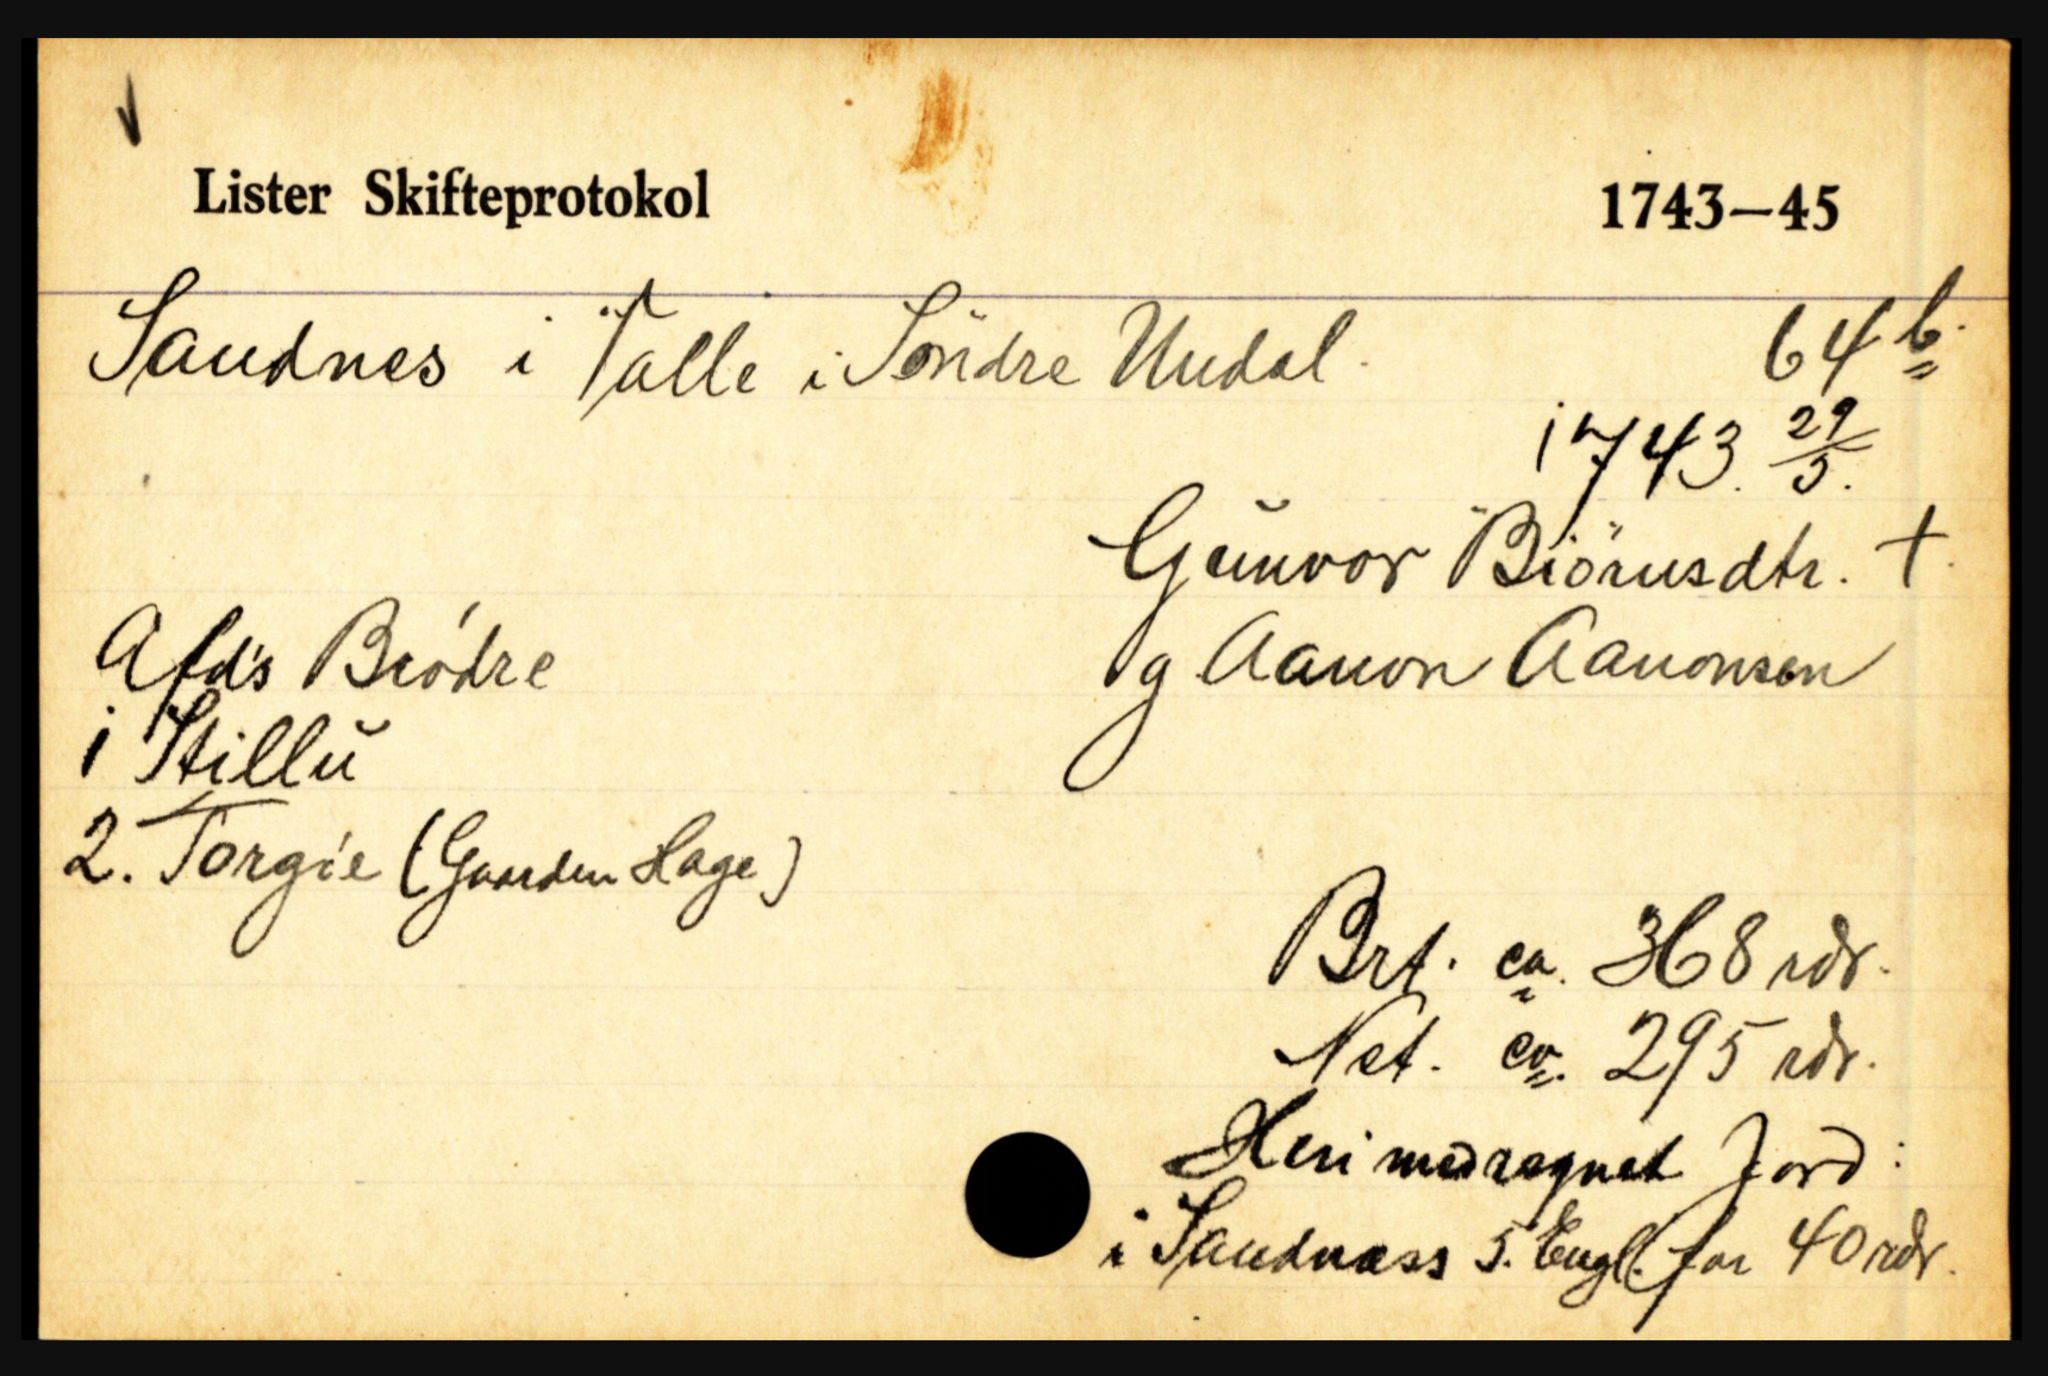 Lister Skifteprotokol 1743–45
Sandnes i Valle i Söndre Undal. 64 b.
1743. 29/5.
Gunvor Biörnsdtr. +
g. Aanon Aanonsen
Afd's Brödre
1 Stillu
2. Torgie (Gaarden Hage)
Brt. ca. 368 rdr.
Net. ca. 295 rdr.
Heri medregnet Jord:
i Sandnæss 5. Engl. for 40 rdr.